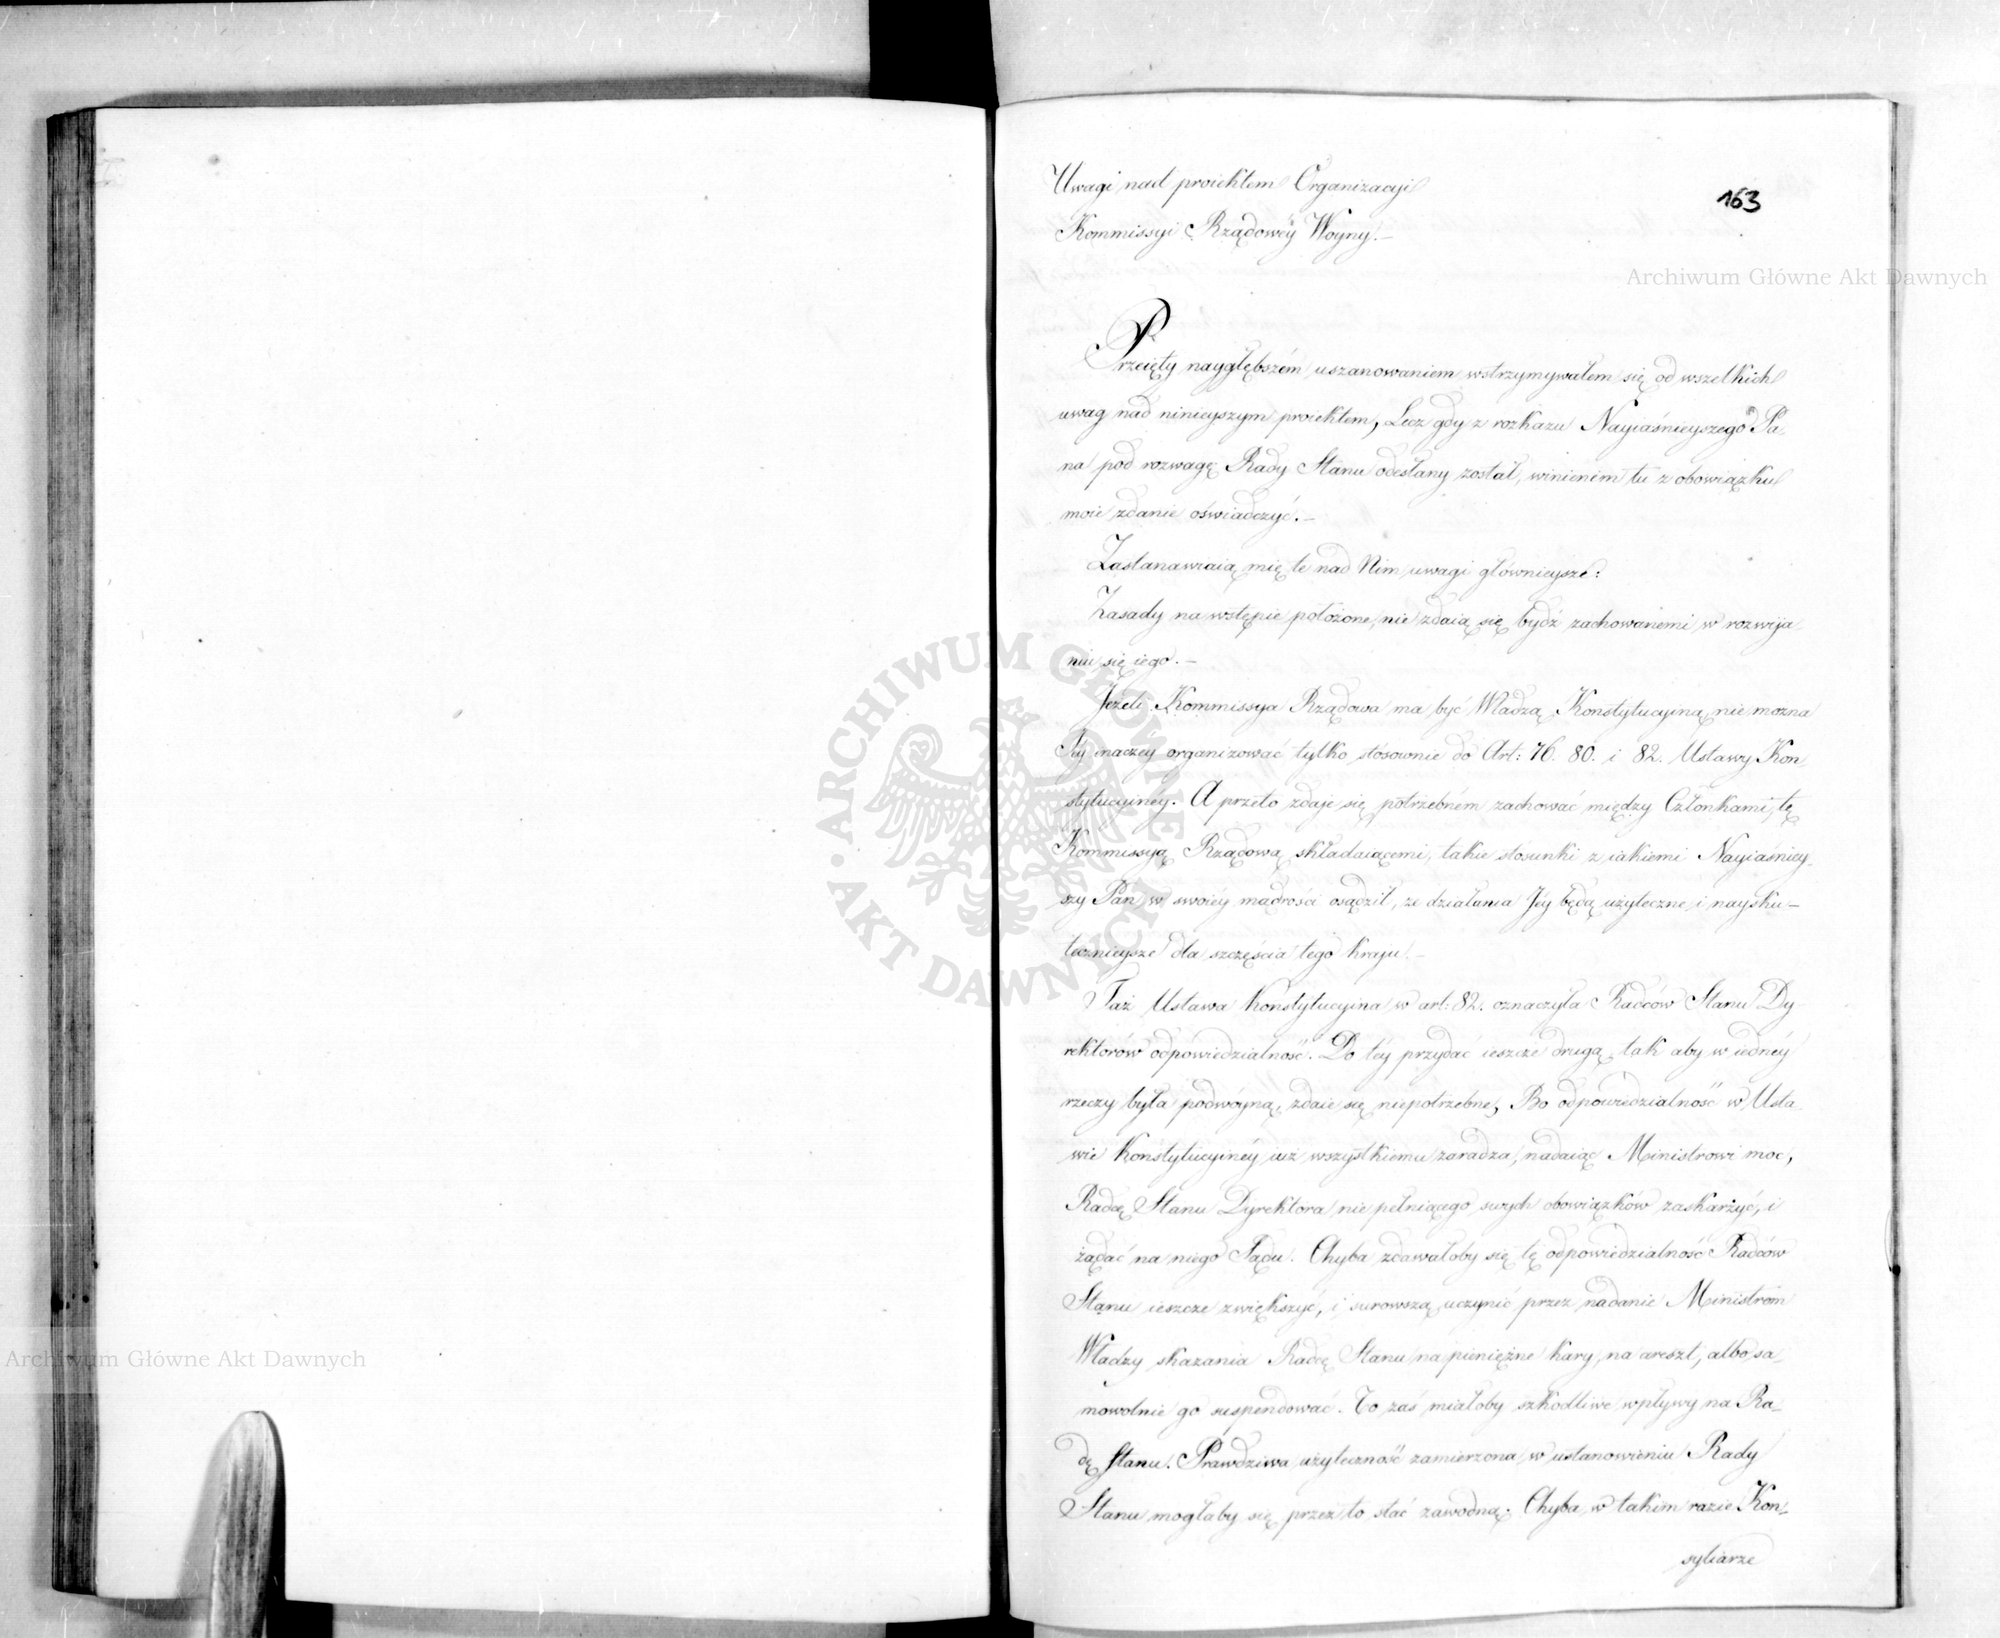 Uwagi nad proiektem Organizacyi
Kommissyi Rządowéy Woyny.—
163
Przeięty naygłębszém uszanowaniem wstrzymywałem się od wszelkich
uwag nad ninieyszym proiektem, Lecz gdy z rozkazu Nayiaśnieyszego Pa-
na pod rozwagę Rady Stanu odesłany został, winienem tu z obowiązku
moie zdanie oświadczyć.—
Zastanawiaią mię te nad Nim uwagi głównieysze:
Zasady na wstępie położone, nie zdaią się bydź zachowanemi w rozwija-
niu się iego.—
Jeżeli Kommissya Rządowa ma być Władzą Konstytucyiną, nie można
Jéy inaczéy organizować tylko stósownie do Art: 76. 80. i 82. Ustawy Kon-
stytucyinéy. A przeto zdaje się potrzebném zachować między Członkami, tę
Kommissyą Rządową składaiącemi, takie stosunki z iakiemi Nayiaśniey-
szy Pan w swoiéy mądrości osądził, że działania Jéy będą użyteczne i naysku-
tecznieysze dla szczęścia tego kraju.—
Taż Ustawa Konstytucyina w art: 82. oznaczyła Radców Stanu Dy
rektorów odpowiedzialność. Do téy przydać ieszcze drugą, tak aby w iednéy
rzeczy była podwóyną, zdaie się niepotrzebne, Bo odpowiedzialność w Usta-
wie Konstytucyinéy iuż wszystkiemu zaradza, nadaiąc Ministrowi moc,
Radcę Stanu Dyrektora nie pełniącego swych obowiązków zaskarżyć, i
żądać na niego Sądu. Chyba zdawałoby się tę odpowiedzialność Radców
Stanu ieszcze zwiększyć, i surowszą uczynić przez nadanie Ministrom
Władzy skazania Radcę Stanu na pieniężne kary, na areszt, albo sa-
mowolnie go suspendować. To zaś miałoby szkodliwe wpływy na Ra-
dę Stanu. Prawdziwa użyteczność zamierzona w ustanowieniu Rady
Stanu mogłaby się przez to stać zawodną. Chyba w takim razie Kon-
syliarze
Archiwum Główne Akt Dawnych
Archiwum Główne Akt Dawnych
ARCHIWUM GŁÓWNE AKT DAWNYCH